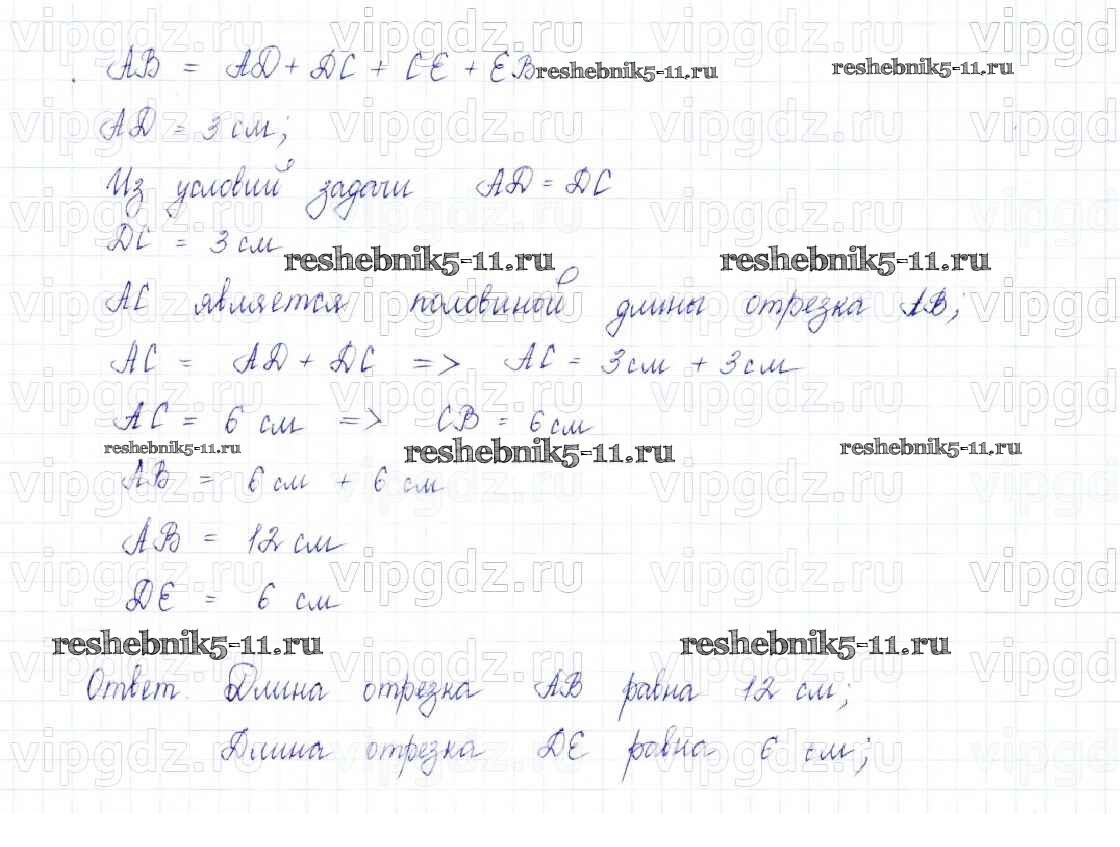 AB = AD + DC + CE + EB reshebnik5-11.ru reshebnik5-11.ru
AD = 3 см;
Из условий задачи AD = DC
DC = 3 см
reshebnik5-11.ru reshebnik5-11.ru
AC является половиной длины отрезка AB;
AC = AD + DC => AC = 3 см + 3 см
AC = 6 см => CB = 6 см
reshebnik5-11.ru reshebnik5-11.ru reshebnik5-11.ru
AB = 6 см + 6 см
AB = 12 см
DE = 6 см
reshebnik5-11.ru reshebnik5-11.ru
Ответ. Длина отрезка AB равна 12 см;
Длина отрезка DE равна 6 см;
vipgdz.ru